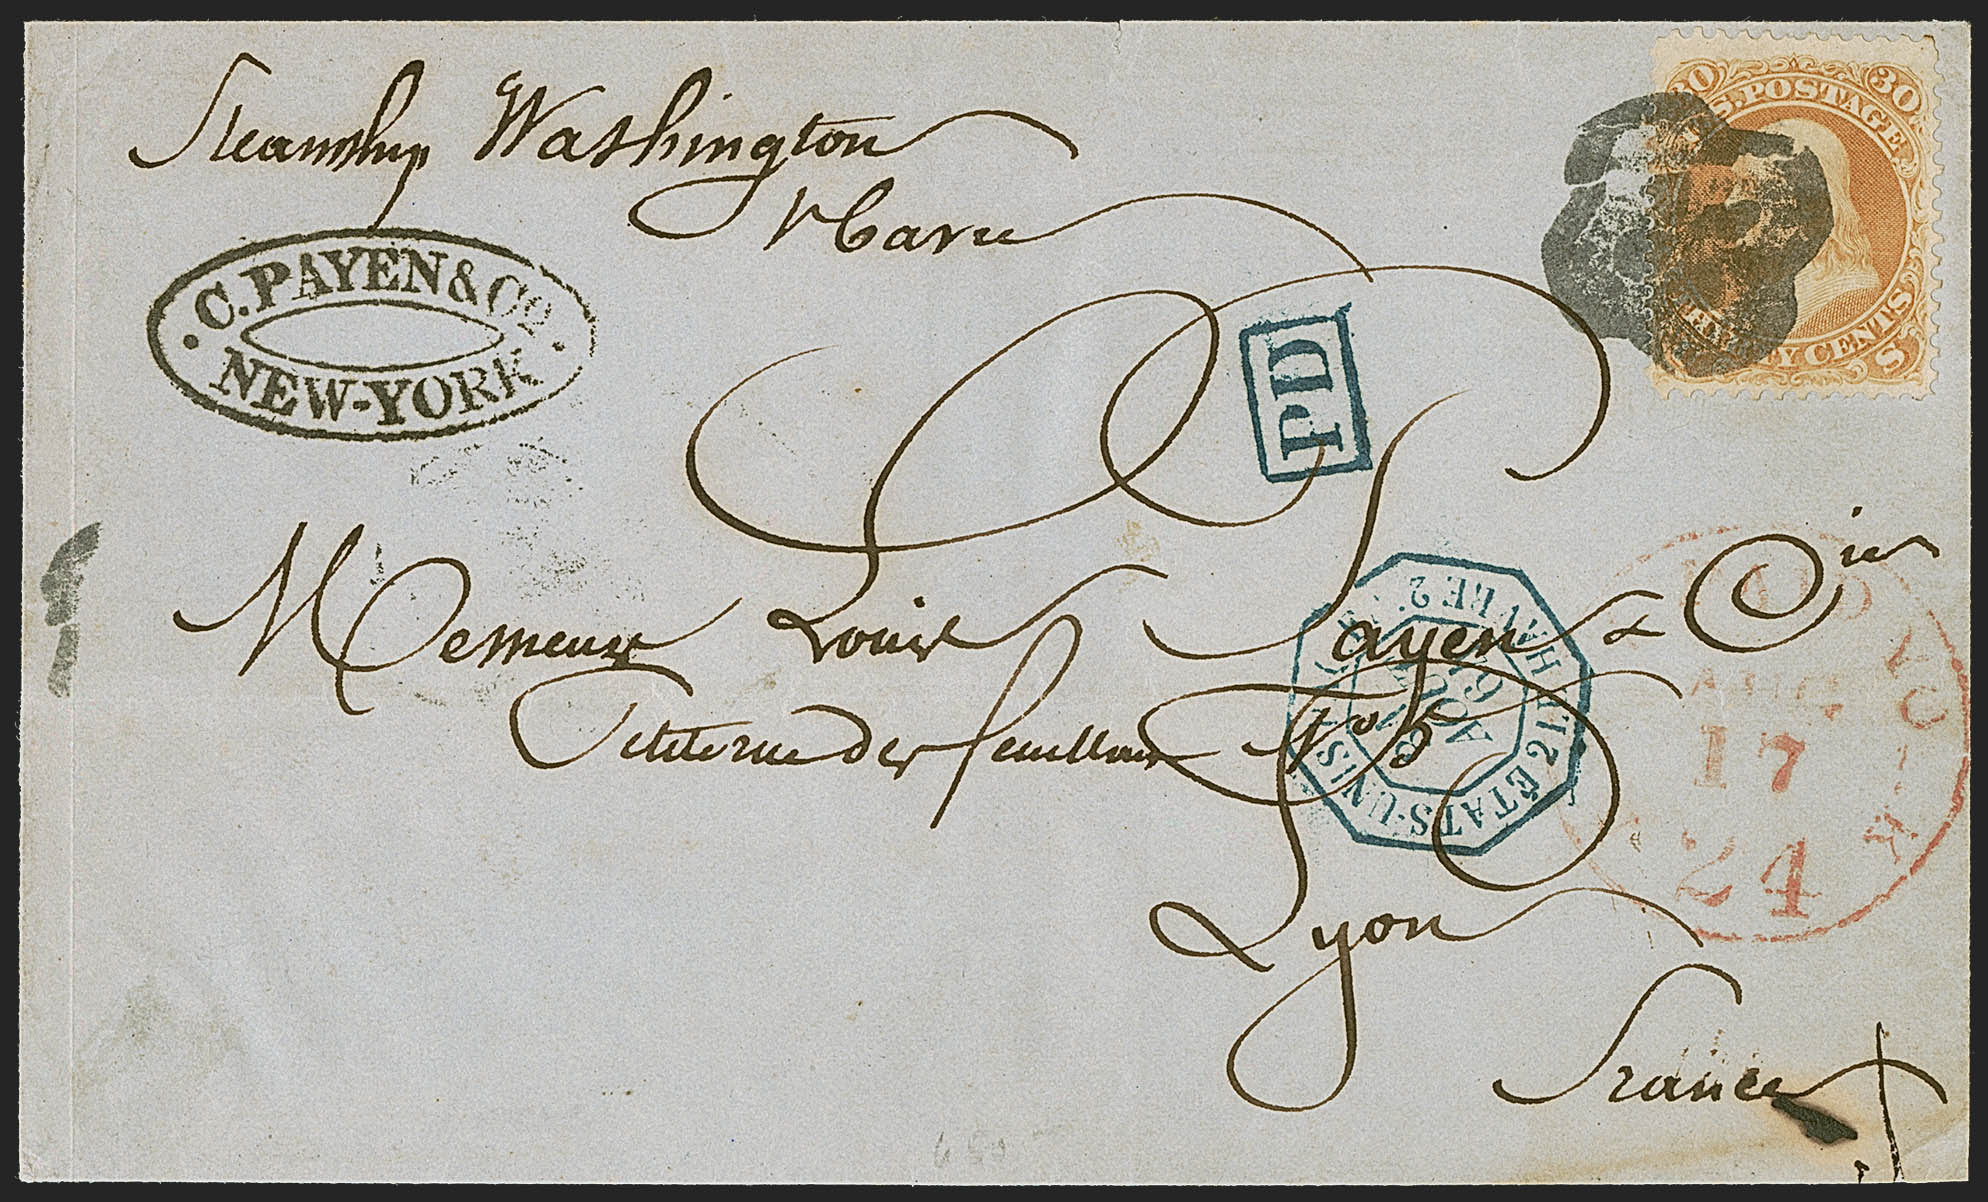 Steamship Washington
Havre
C. PAYEN & Co.
NEW-YORK
30 U.S. POSTAGE 30
THIRTY CENTS
PD
Messieurs Louis Payen & Cie
Petite rue des feuillans No 5
Lyon
France
ÉTATS-UNIS
2 LE HAVRE 2
AOUT
PAID
AUG
17
24